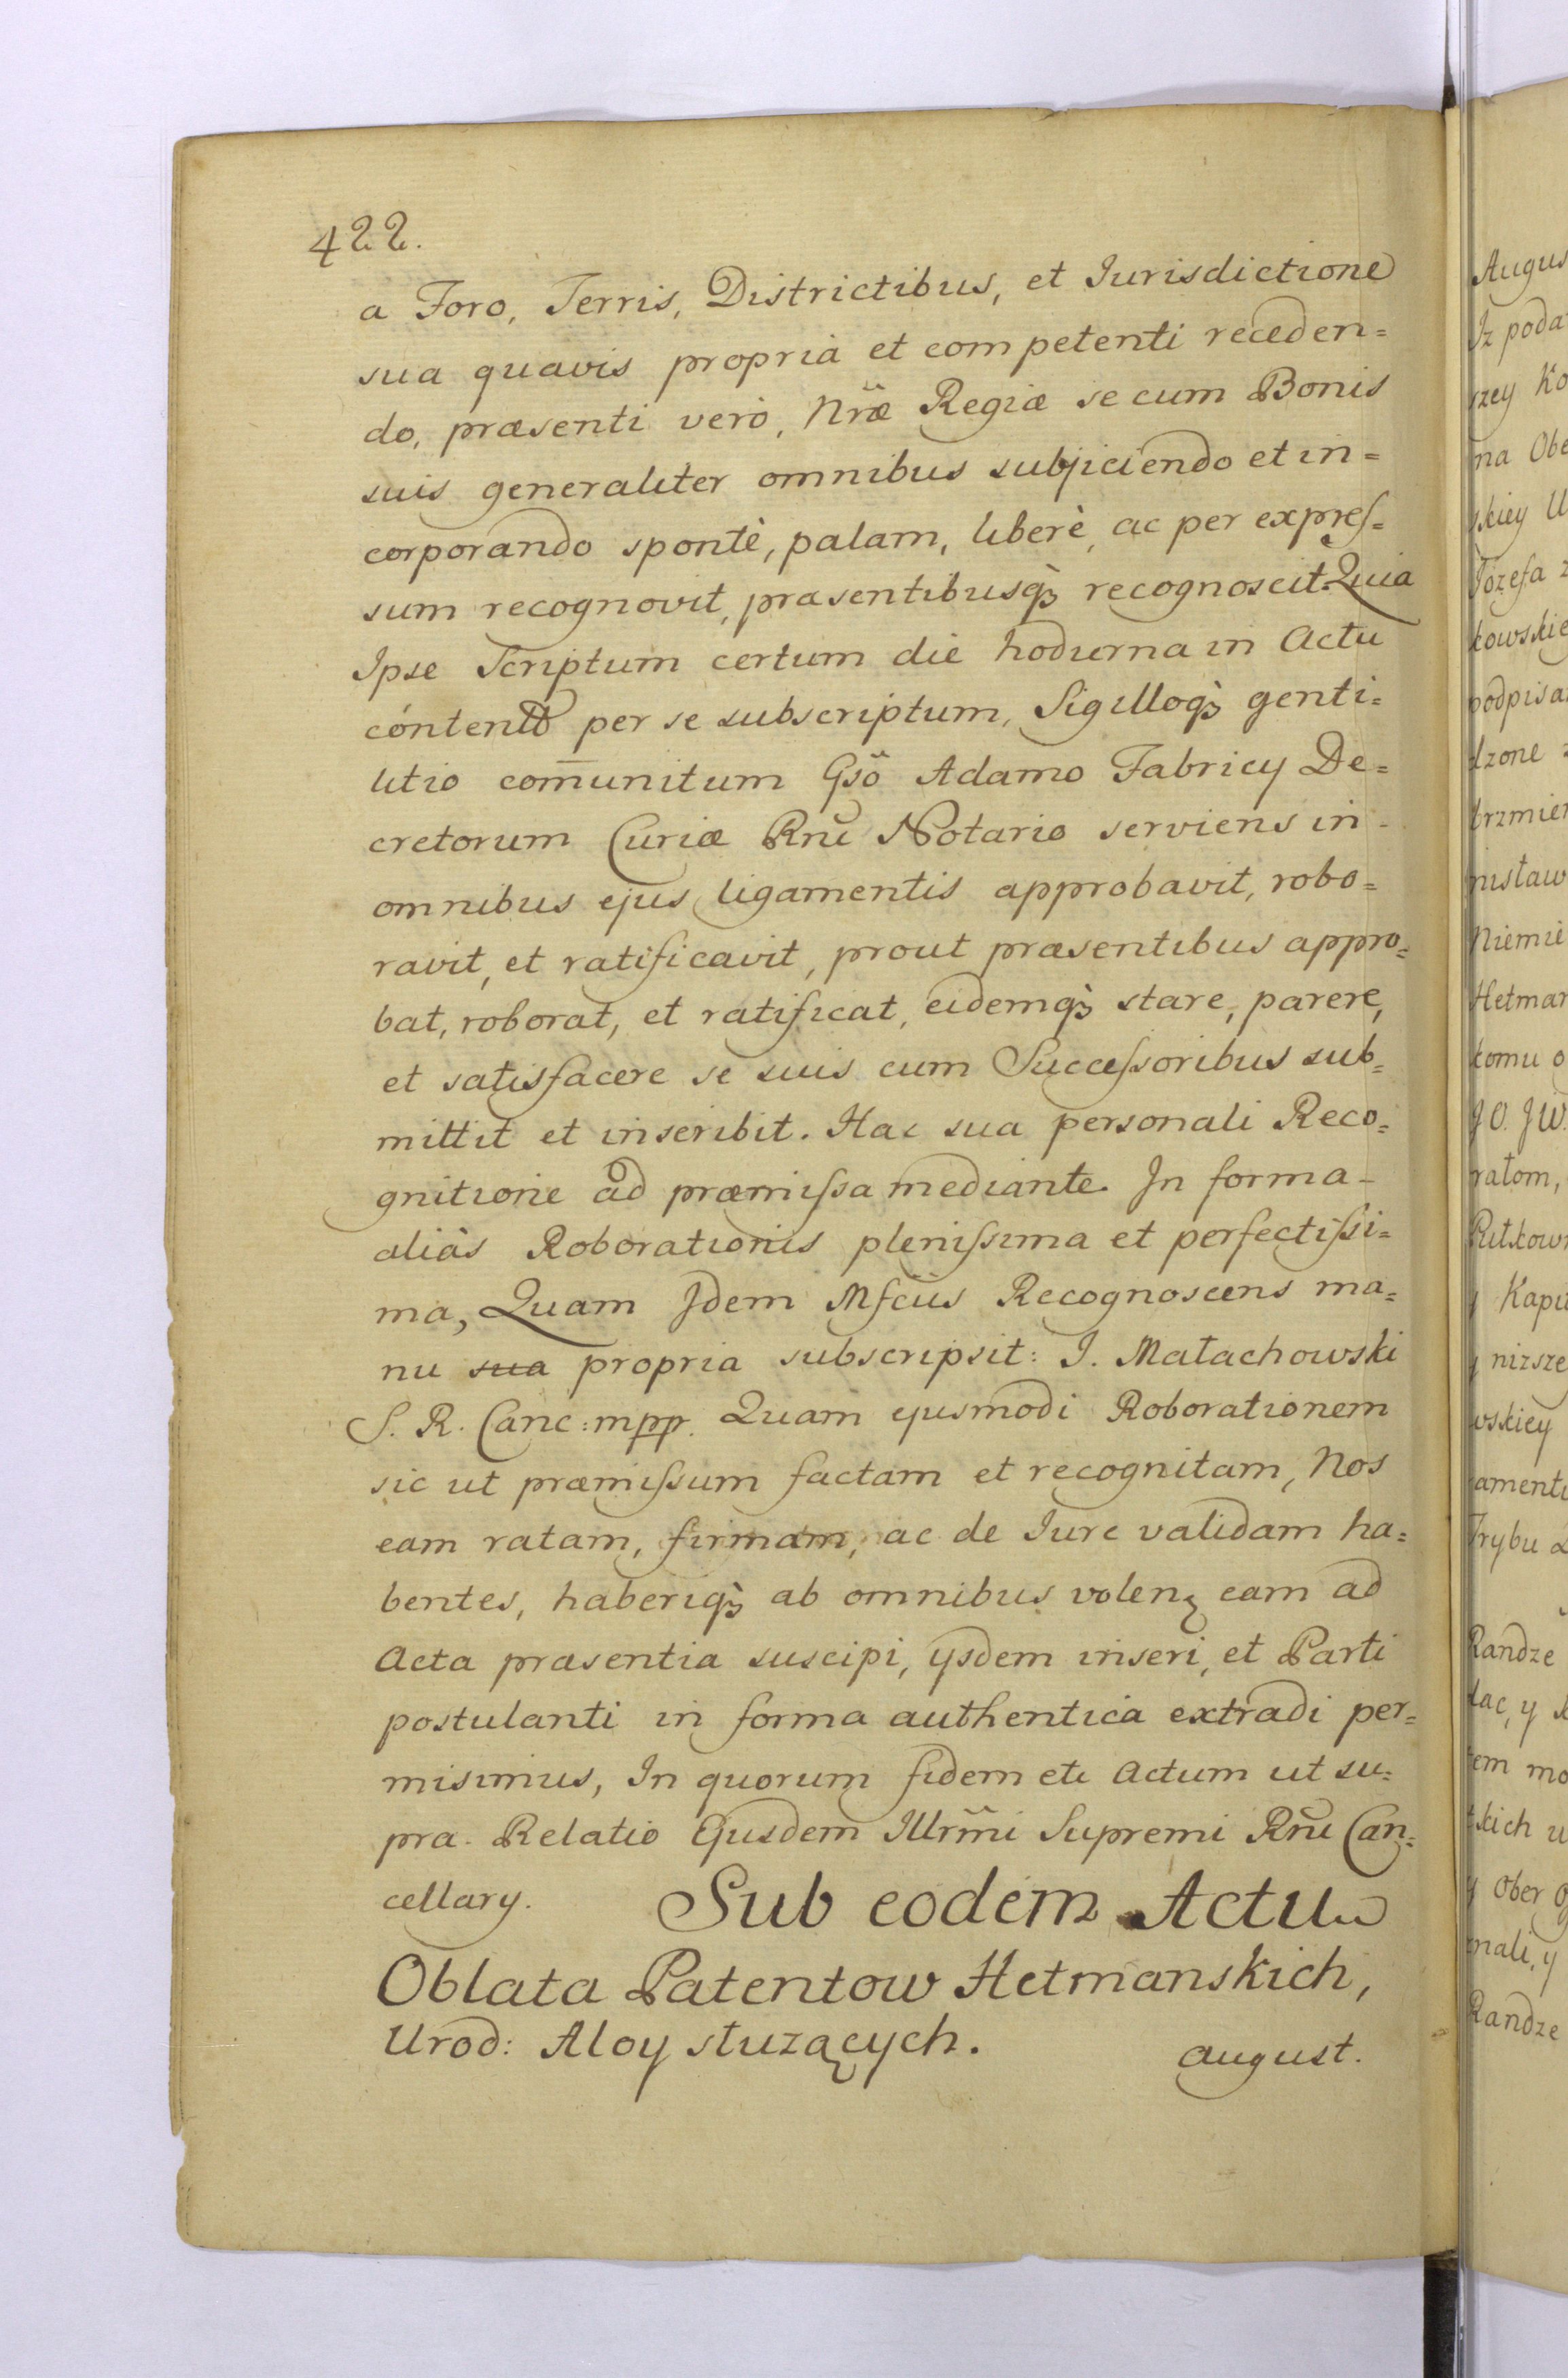 422.
a Foro, Terris, Districtibus, et Jurisdictione
sua quavis propria et competenti receden=
do, præsenti verò, Nr̃æ Regiæ se cum Bonis
suis generaliter omnibus subjiciendo et in=
corporando spontè, palam, liberè, ac per expres=
sum recognovit, præsentibusq̃ recognoscit. Quia
Ipse Scriptum certum die hodierna in Actu
contento per se subscriptum, Sigilloq̃ genti=
litio com̃unitum Gsõ Adamo Fabricy De=
cretorum Curiæ Rnĩ Notario serviens in
omnibus ejus ligamentis approbavit, robo=
ravit, et ratificavit, prout præsentibus appro=
bat, roborat, et ratificat, eidemq̃ stare, parere,
et satisfacere se suis cum Successoribus sub=
mittit et inscribit. Hac sua personali Reco=
gnitione ad præmissa mediante. In forma
aliàs Roborationis plenissima et perfectissi=
ma, Quam Idem Mfcus Recognoscens ma=
nu sua propria subscripsit: J. Małachowski
S. R. Canc: mpp. Quam ejusmodi Roborationem
sic ut præmissum factam et recognitam, Nos
eam ratam, firmam, ac de Jure validam ha=
bentes, haberiq̃ ab omnibus volen eam ad
Acta præsentia suscipi, ysdem inseri, et Parti
postulanti in forma authentica extradi per=
misimus, In quorum fidem etc Actum ut su=
pra. Relatio Ejusdem Illrm̃i Supremi Rnĩ Can=
cellary. Sub eodem Actu
Oblata Patentow Hetmanskich,
Urod: Aloy służących.
August.
Augus
Jz poda
szey Ko
na Obe
skiey U
Józefa z
kowskie
podpisa
dzone z
brzmie
nisław
Niemie
Hetman
komu o
JO. JW.
ratom,
Rutkow
y Kapi
y nizsze
wskiey
amenti
Trybu
Randze
tac, y
tem mo
skich u
y Ober
nali, y
Randze